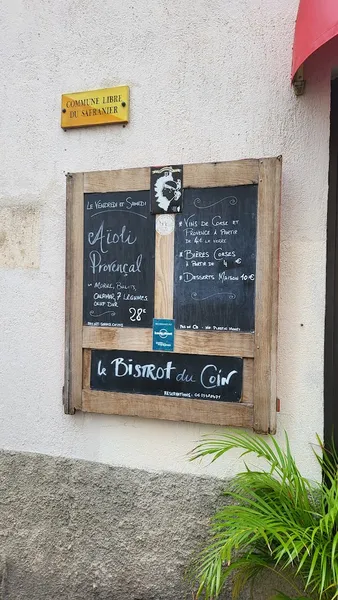 COMMUNE LIBRE
DU SAFRANIER
LE VENDREDI ET SAMEDI
Aïoli
Provençal
MORUE, BULOT,
CALAMAR, 7 LEGUMES
OEUF DUR
28€
* VINS DE CORSE ET
PROVENCE À PARTIR
DE 4€ LE VERRE
* BIÈRES CORSES
À PARTIR DE 4€
* DESSERTS MAISON 10€
Le BISTROT du COIN
RÉSERVATIONS: